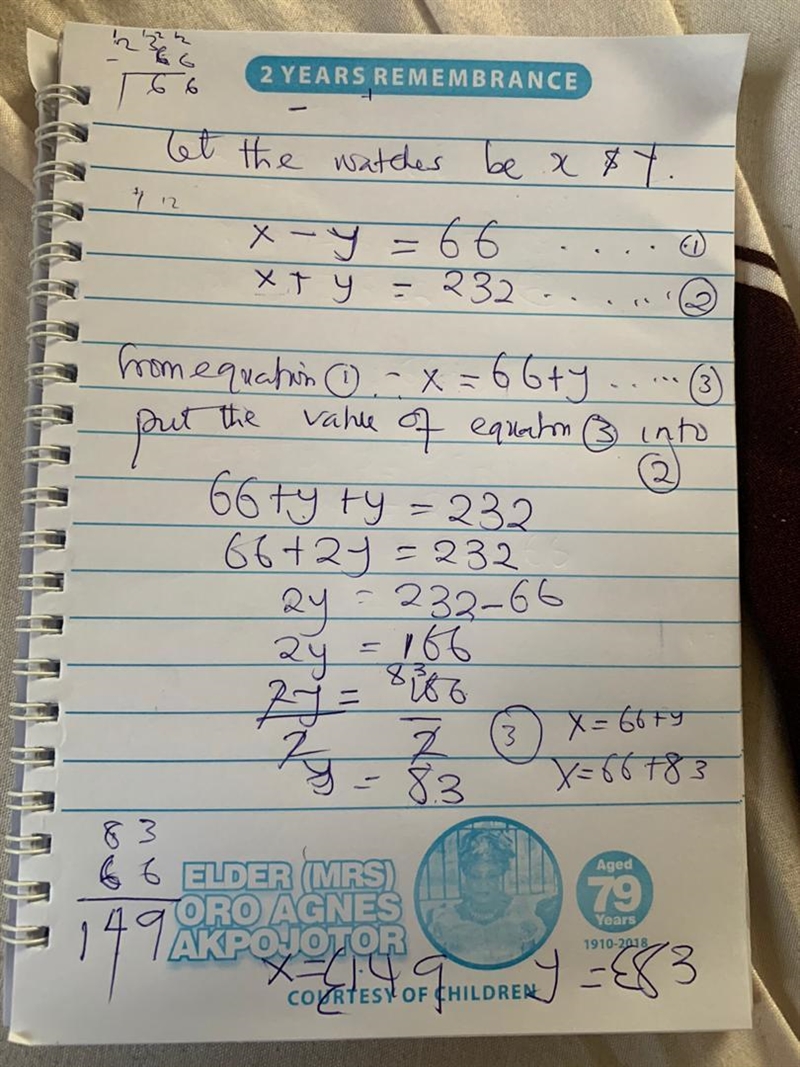 232
- 66
166
2 YEARS REMEMBRANCE
- +
Let the watches be x & y.
x - y = 66 ..... ①
x + y = 232 ...... ②
from equation ① .- x = 66+y ...... ③
put the value of equation ③ into
②
66+y+y = 232
66+2y = 232
2y = 232-66
2y = 166
2y = 166
83
2 2
y = 83
③ x = 66+y
x = 66+83
83
66
149
ELDER (MRS)
ORO AGNES
AKPOJOTOR
Aged
79
Years
1910-2018
x = £149 y = £83
COURTESY OF CHILDREN